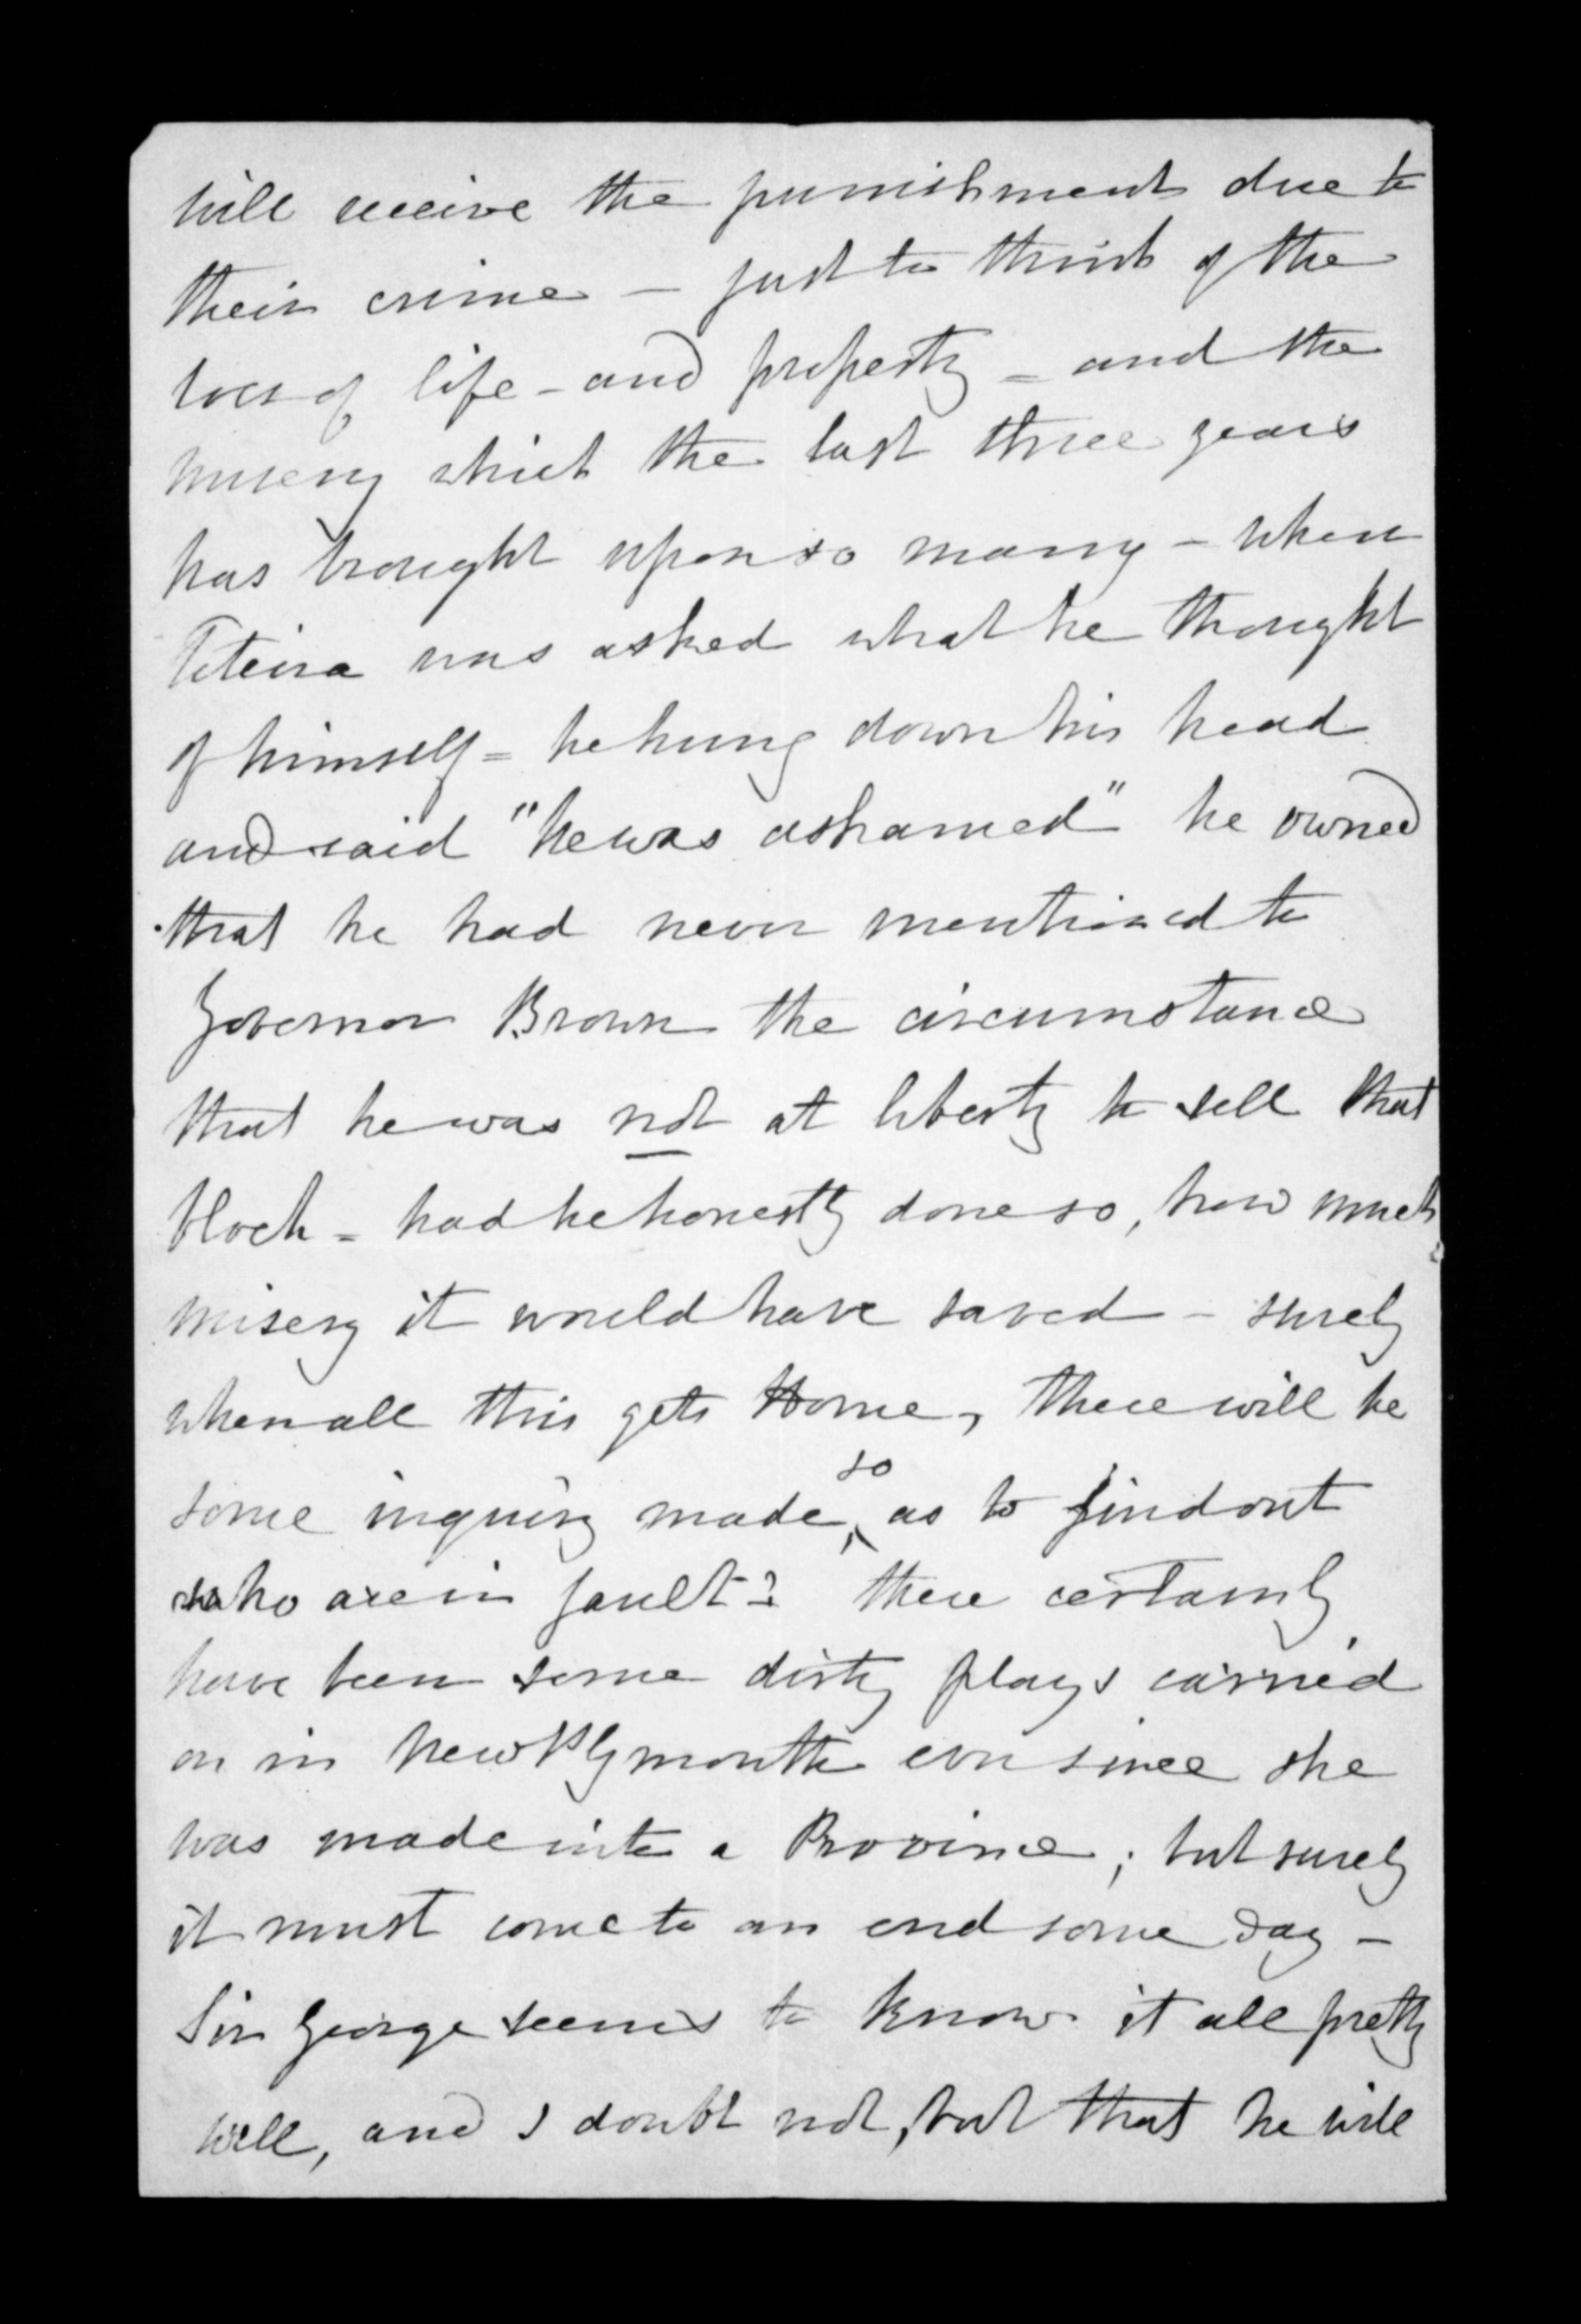 will receive the punishment due to
their crime — just to think of the
loss of life - and property - and the
misery which the last three years
has brought upon so many - when
Teteira was asked what he thought
of himself = he hung down his head
and said "he was ashamed" he owned
that he had never mentioned to
Governor Brown the circumstance
that he was not at liberty to sell that
block = had he honestly done so, how much
misery it would have saved - surely
when all this gets Home, there will be
some inquiry made, so as to find out
who are in fault? there certainly
have been some dirty plays carried
on in New Plymouth ever since she
was made into a Province; but surely
it must come to an end some day -
Sir George seems to know it all pretty
well, and I doubt not, but that he will